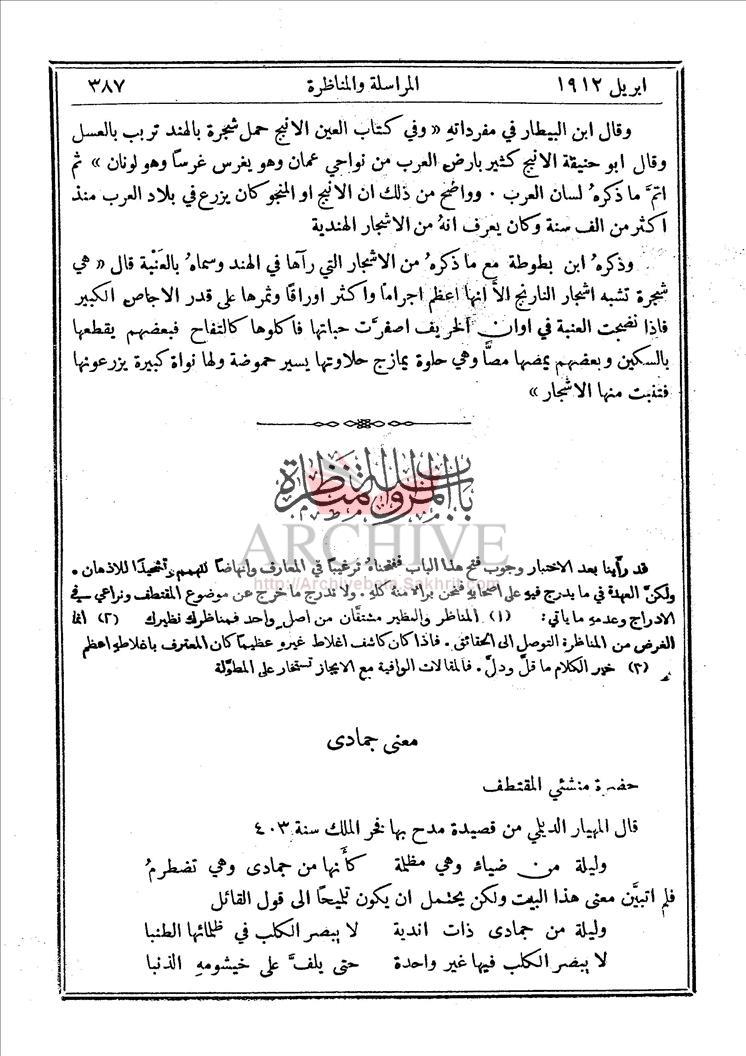 ابريل ١٩١٢ المراسلة والمناظرة ٣٨٧
وقال ابن البيطار في مفرداتهِ « وفي كتاب العين الانبج حمل شجرة بالهند تربب بالعسل
وقال ابو حنيفة الانبج كثير بارض العرب من نواحي عمان وهو يغرس غرساً وهو لونان » ثم
اتمَّ ما ذكرهُ لسان العرب . وواضح من ذلك ان الانبج او المنجو كان يزرع في بلاد العرب منذ
اكثر من الف سنة وكان يعرف انهُ من الاشجار الهندية
وذكرهُ ابن بطوطة مع ما ذكرهُ من الاشجار التي رآها في الهند وسماهُ بالعَنْبة قال « هي
شجرة تشبه اشجار النارنج الاَّ انها اعظم اجراماً واكثر اوراقاً وثمرها على قدر الاجاص الكبير
فاذا نضجت العنبة في اوان الخريف اصفرَّت حباتها فاكلوها كالتفاح فبعضهم يقطعها
بالسكين وبعضهم يمصها مصًّا وهي حلوة يمازج حلاوتها يسير حموضة ولها نواة كبيرة يزرعونها
فتنبت منها الاشجار »
باب المراسلة والمناظرة
ARCHIVE
http://Archivebeta.Sakhrit.com
قد رأينا بعد الاختبار وجوب فتح هذا الباب ففتحناهُ ترغيباً في المعارف وانهاضاً للهمم وتشحيذاً للاذهان .
ولكنَّ العهدة في ما يدرج فيهِ على اصحابهِ فنحن برالا منهُ كلهِ . ولا ندرج ما خرج عن موضوع المقتطف ونراعي في
الادراج وعدمهِ ما ياتي : (١) المناظر والنظير مشتقَّان من اصل واحد فمناظرك نظيرك (٢) انما
الغرض من المناظرة التوصل الى الحقائق . فاذا كان كاشف اغلاط غيرهِ عظيماً كان المعترف باغلاطهِ اعظم
(٣) خير الكلام ما قلَّ ودلَّ . فالمقالات الوافية مع الايجاز تستخار على المطوَّلة
معنى جمادى
حضرة منشئي المقتطف
قال المهيار الديلي من قصيدة مدح بها فخر الملك سنة ٤٠٣
وليلة من ضياء وهي مظلمة كأنها من جمادى وهي تضطرمُ
فلم اتبيَّن معنى هذا البيت ولكن يحتمل ان يكون تلميحاً الى قول القائل
وليلة من جمادى ذات اندية لا يبصر الكلب في ظلمائها الطنبا
لا يبصر الكلب فيها غير واحدة حتى يلفَّ على خيشومهِ الذنبا